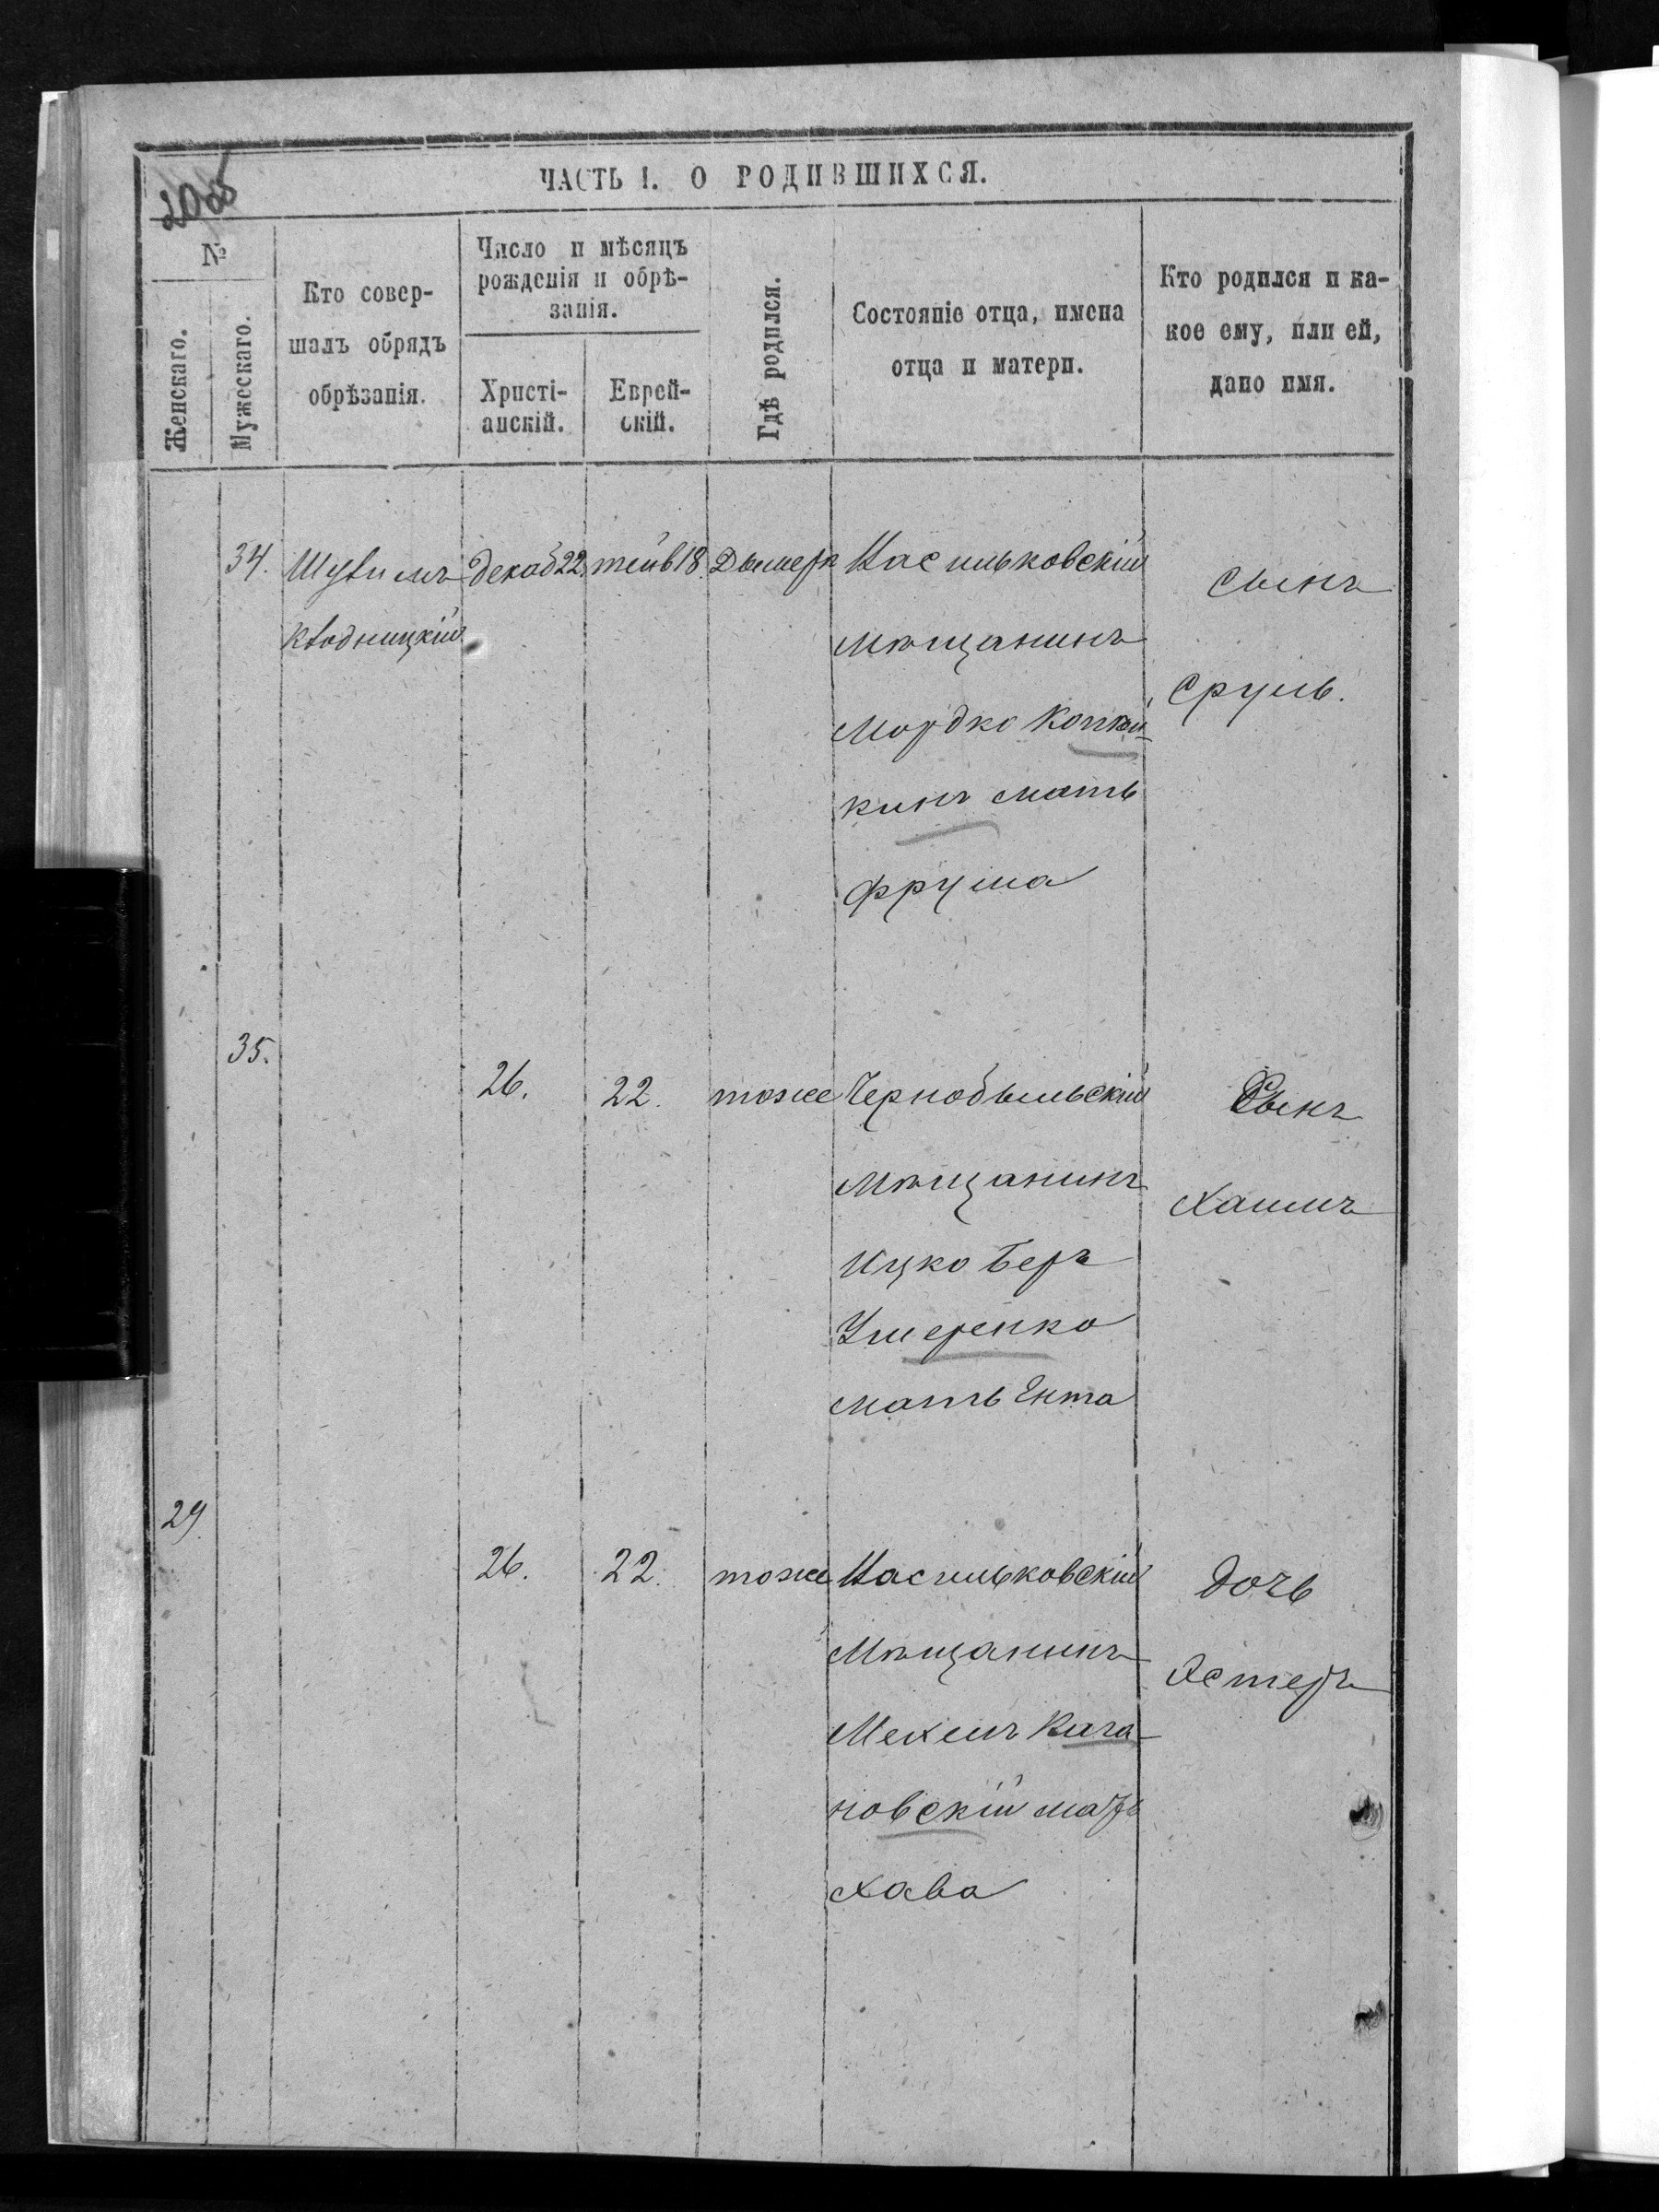 ЧАСТЬ I. О РОДИВШИХСЯ.
№
Женскаго.
Мужескаго.
Кто совер-
шалъ обрядъ
обрѣзанія.
Число и мѣсяцъ
рожденія и обрѣ-
занія.
Христі-
анскій.
Еврей-
скій.
Гдѣ родился.
Состояніе отца, имена
отца и матери.
Кто родился и ка-
кое ему, или ей,
дано имя.
34.
Декаб 22.
тейв 18.
Дымерѣ
Васильковскій
мѣщанинъ
Мордко
кинъ мать
Фрума
сынъ
Сруль.
35.
26.
22.
тоже
Чернобыльскій
мѣщанинъ
Ицко Беръ
Ушеренко
мать Ента
Сынъ
Хаимъ
29.
26.
22.
тоже
Васильковскій
Мѣщанинъ
Мехель Кага-
новскій мать
Хава
дочь
Эстеръ